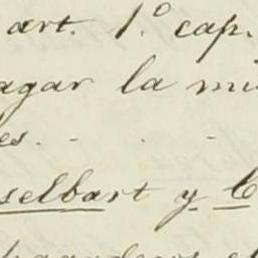 art. 1.º cap.
agar la mi
es. - . -
selbart y C